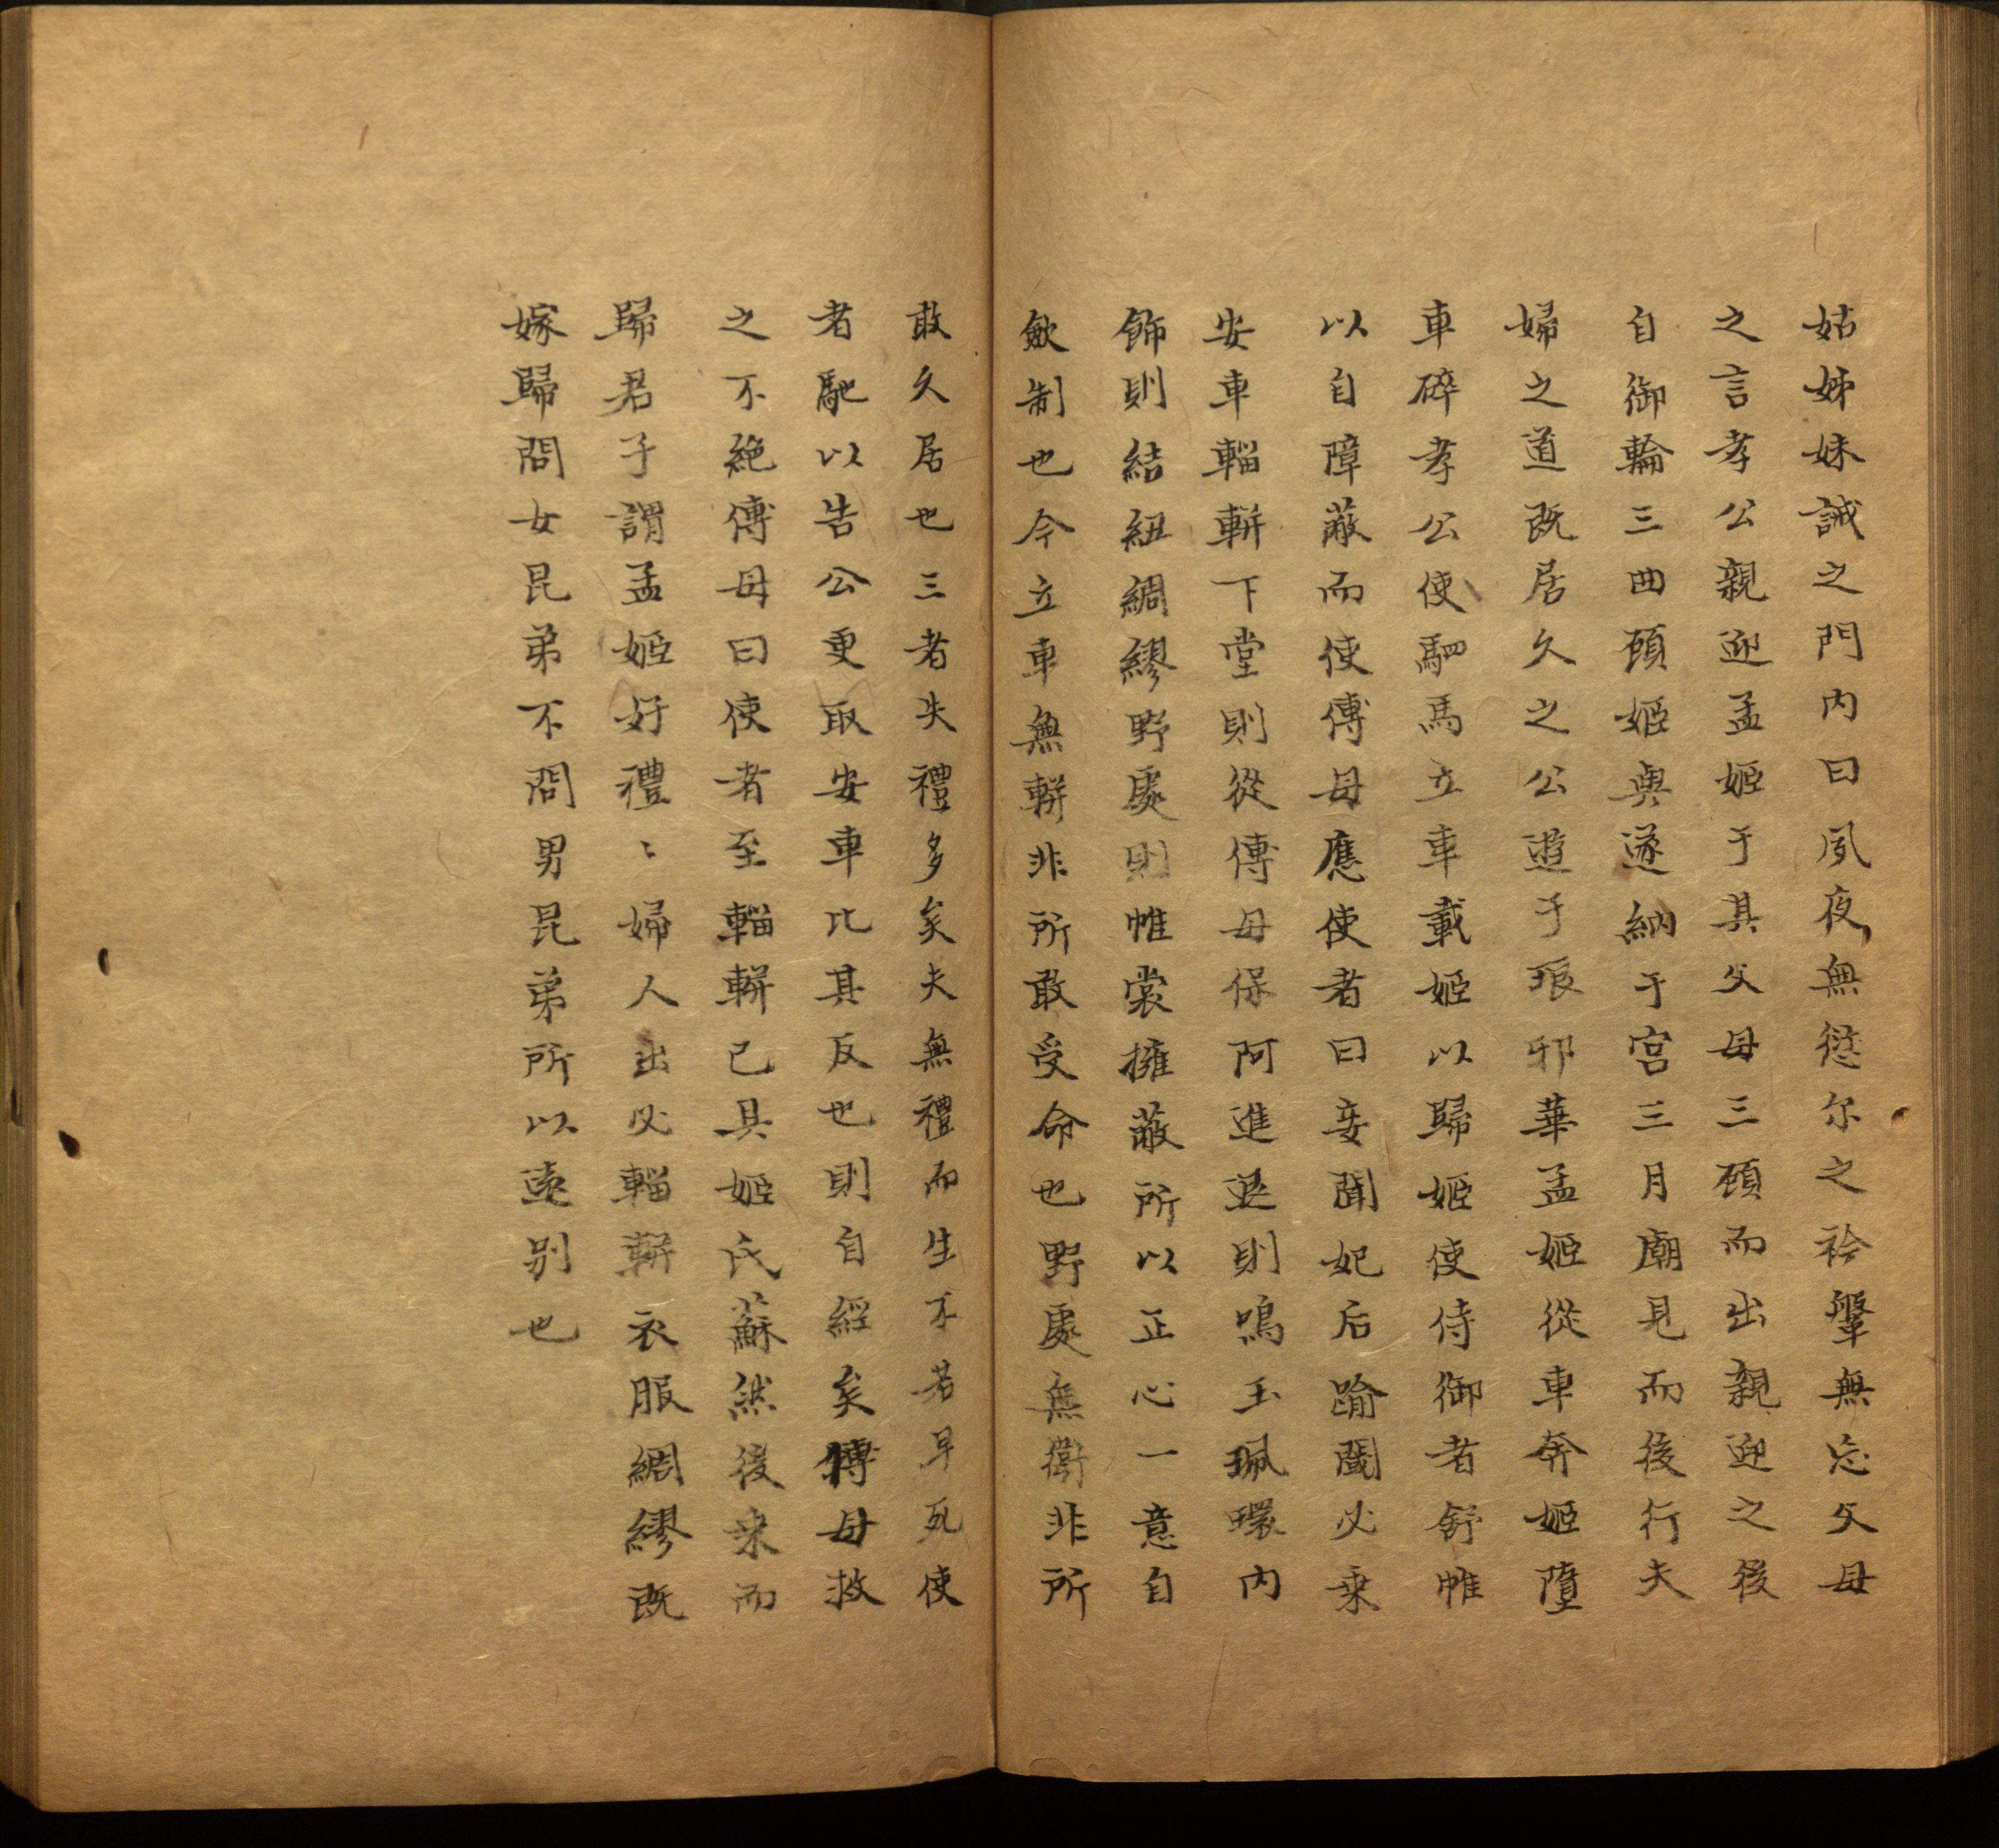 姑姊妹誡之門内曰夙夜無愆尔之衿鞶無忘父母
之言孝公親迎孟姬于其父母三顧而出親迎之後
自御輪三曲顧姬輿遂納于宮三月廟見而後行夫
婦之道既居久之公遊于琅邪華孟姬從車奔姬墮
車碎孝公使駟馬立車載姬以歸姬使侍御者舒帷
以自障蔽而使傅母應使者曰妾聞妃后踰閾必乗
安車輜軿下堂則從傅母保阿進退則鳴玉珮環内
飾則結紐綢繆野處則帷裳擁蔽所以正心一意自
歛制也今立車無軿非所敢受命也野處無衛非所
敢久居也三者失禮多矣夫無禮而生不若早死使
者馳以告公更取安車比其反也則自經矣傅母救
之不絶傅母曰使者至輜軿已具姬氏蘇然後来而
歸君子謂孟姬好禮〻婦人出必輜軿衣服綢繆既
嫁歸問女昆弟不問男昆弟所以遠别也